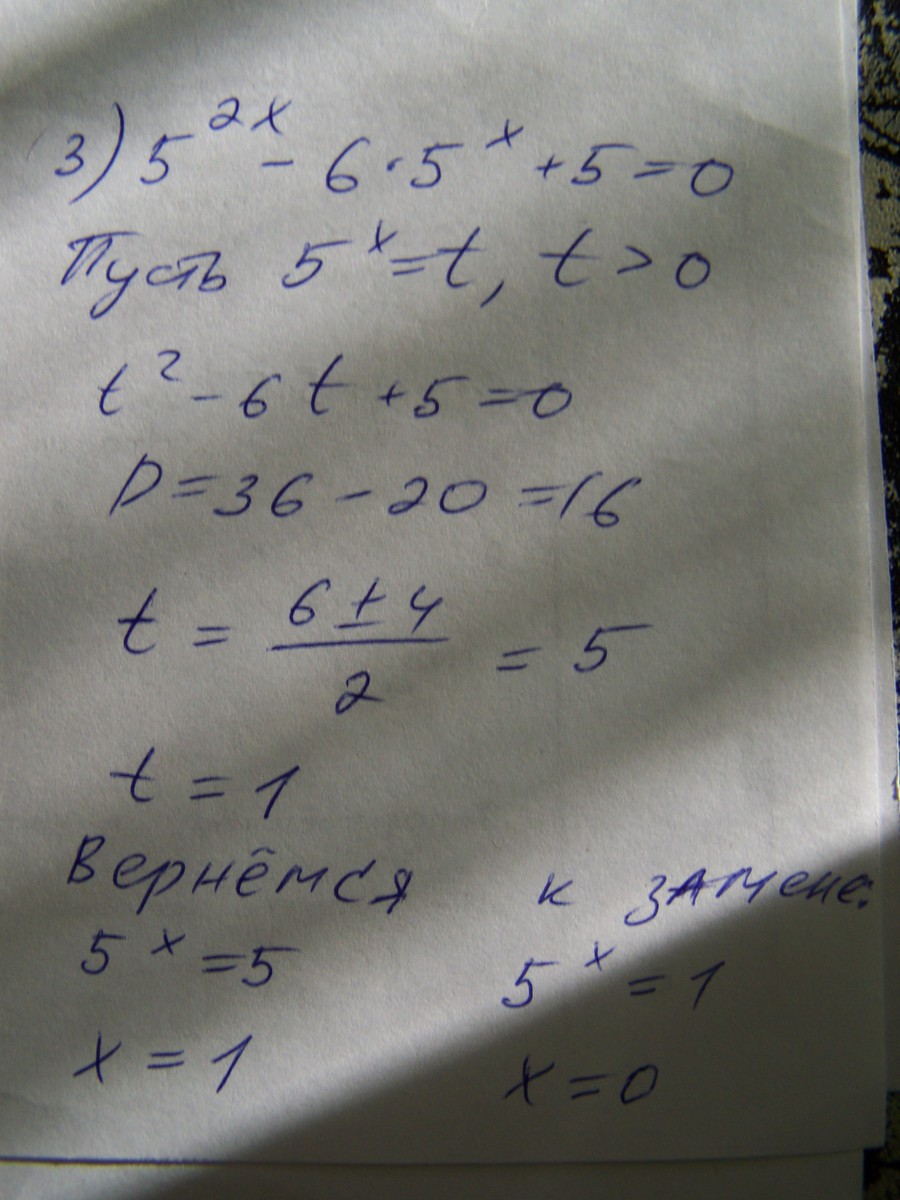 3) 5^{2x} - 6·5^x + 5 = 0
Пусть 5^x = t, t > 0
t² - 6t + 5 = 0
D = 36 - 20 = 16
t = \frac{6 ± 4}{2} = 5
t = 1
Вернёмся к замене:
5^x = 5 5^x = 1
x = 1 x = 0